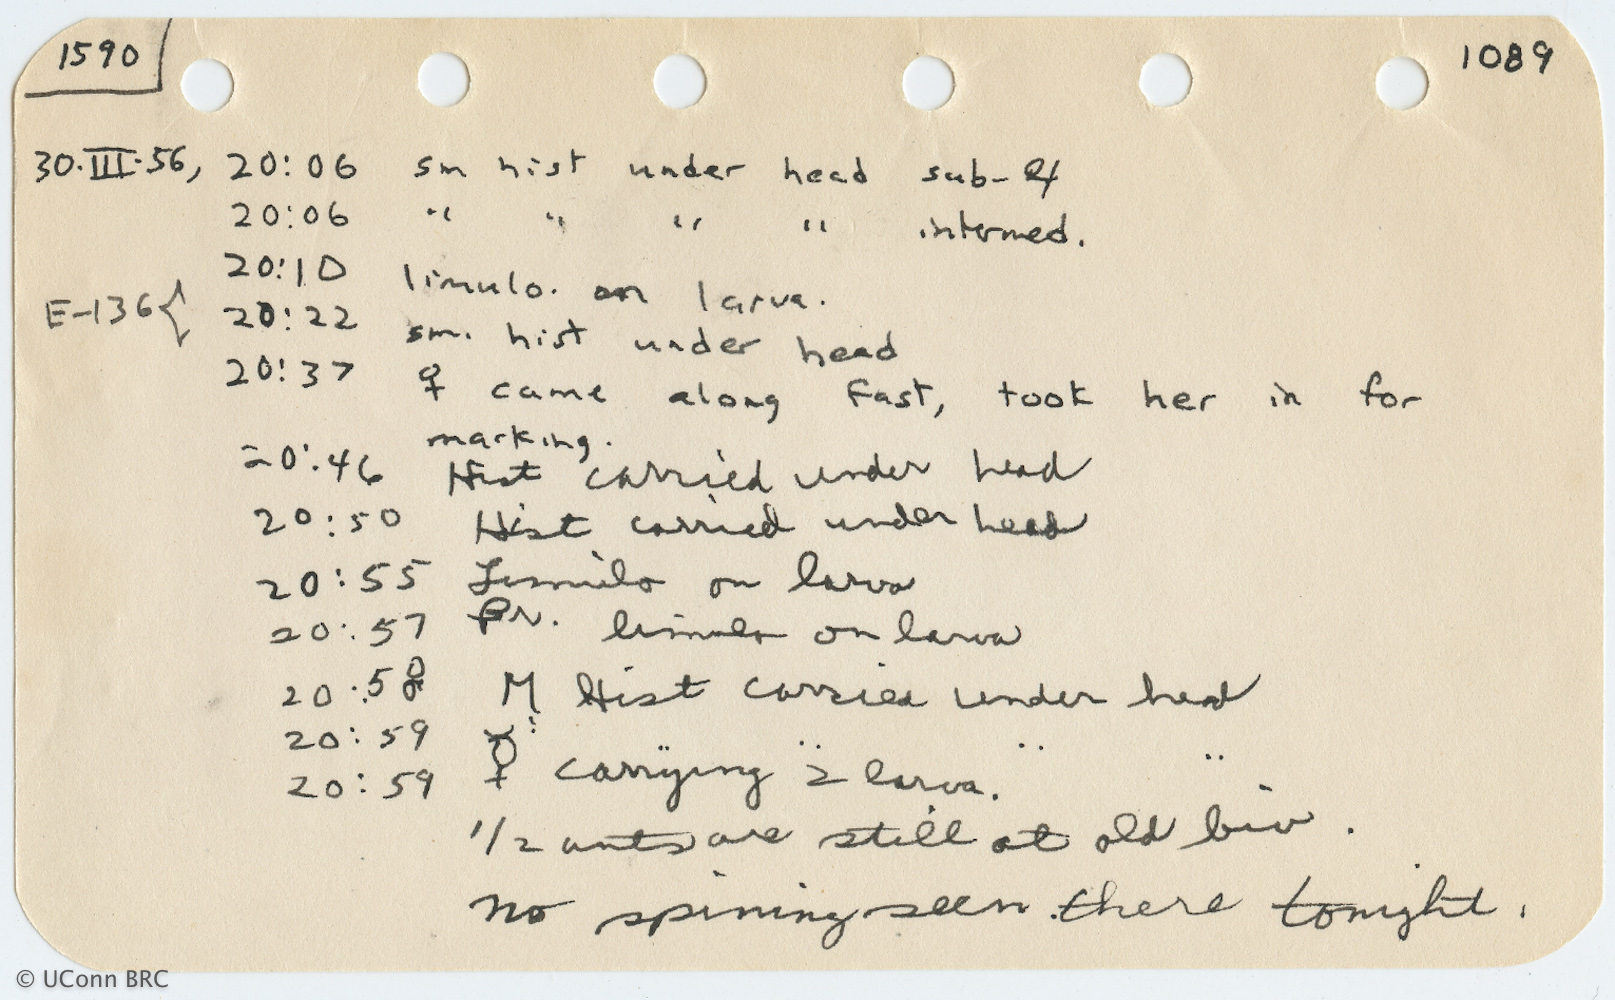 1590 1089
30.III.56, 20:06 sm hist under head sub-
20:06 " " " " intermed.
20:10 limulo. on larva.
E-136 { 20:22 sm. hist under head
20:37 ♀ came along fast, took her in for
marking.
20:46 Hist carried under head
20:50 Hist carried under head
20:55 Limulo on larva
20:57 Pr. limulo on larva
20:58 M Hist carried under head
20:59 " " " " "
20:59 ☿ carrying 2 larva.
1/2 ants are still at old biv.
No spining seen there tonight.
© UConn BRC